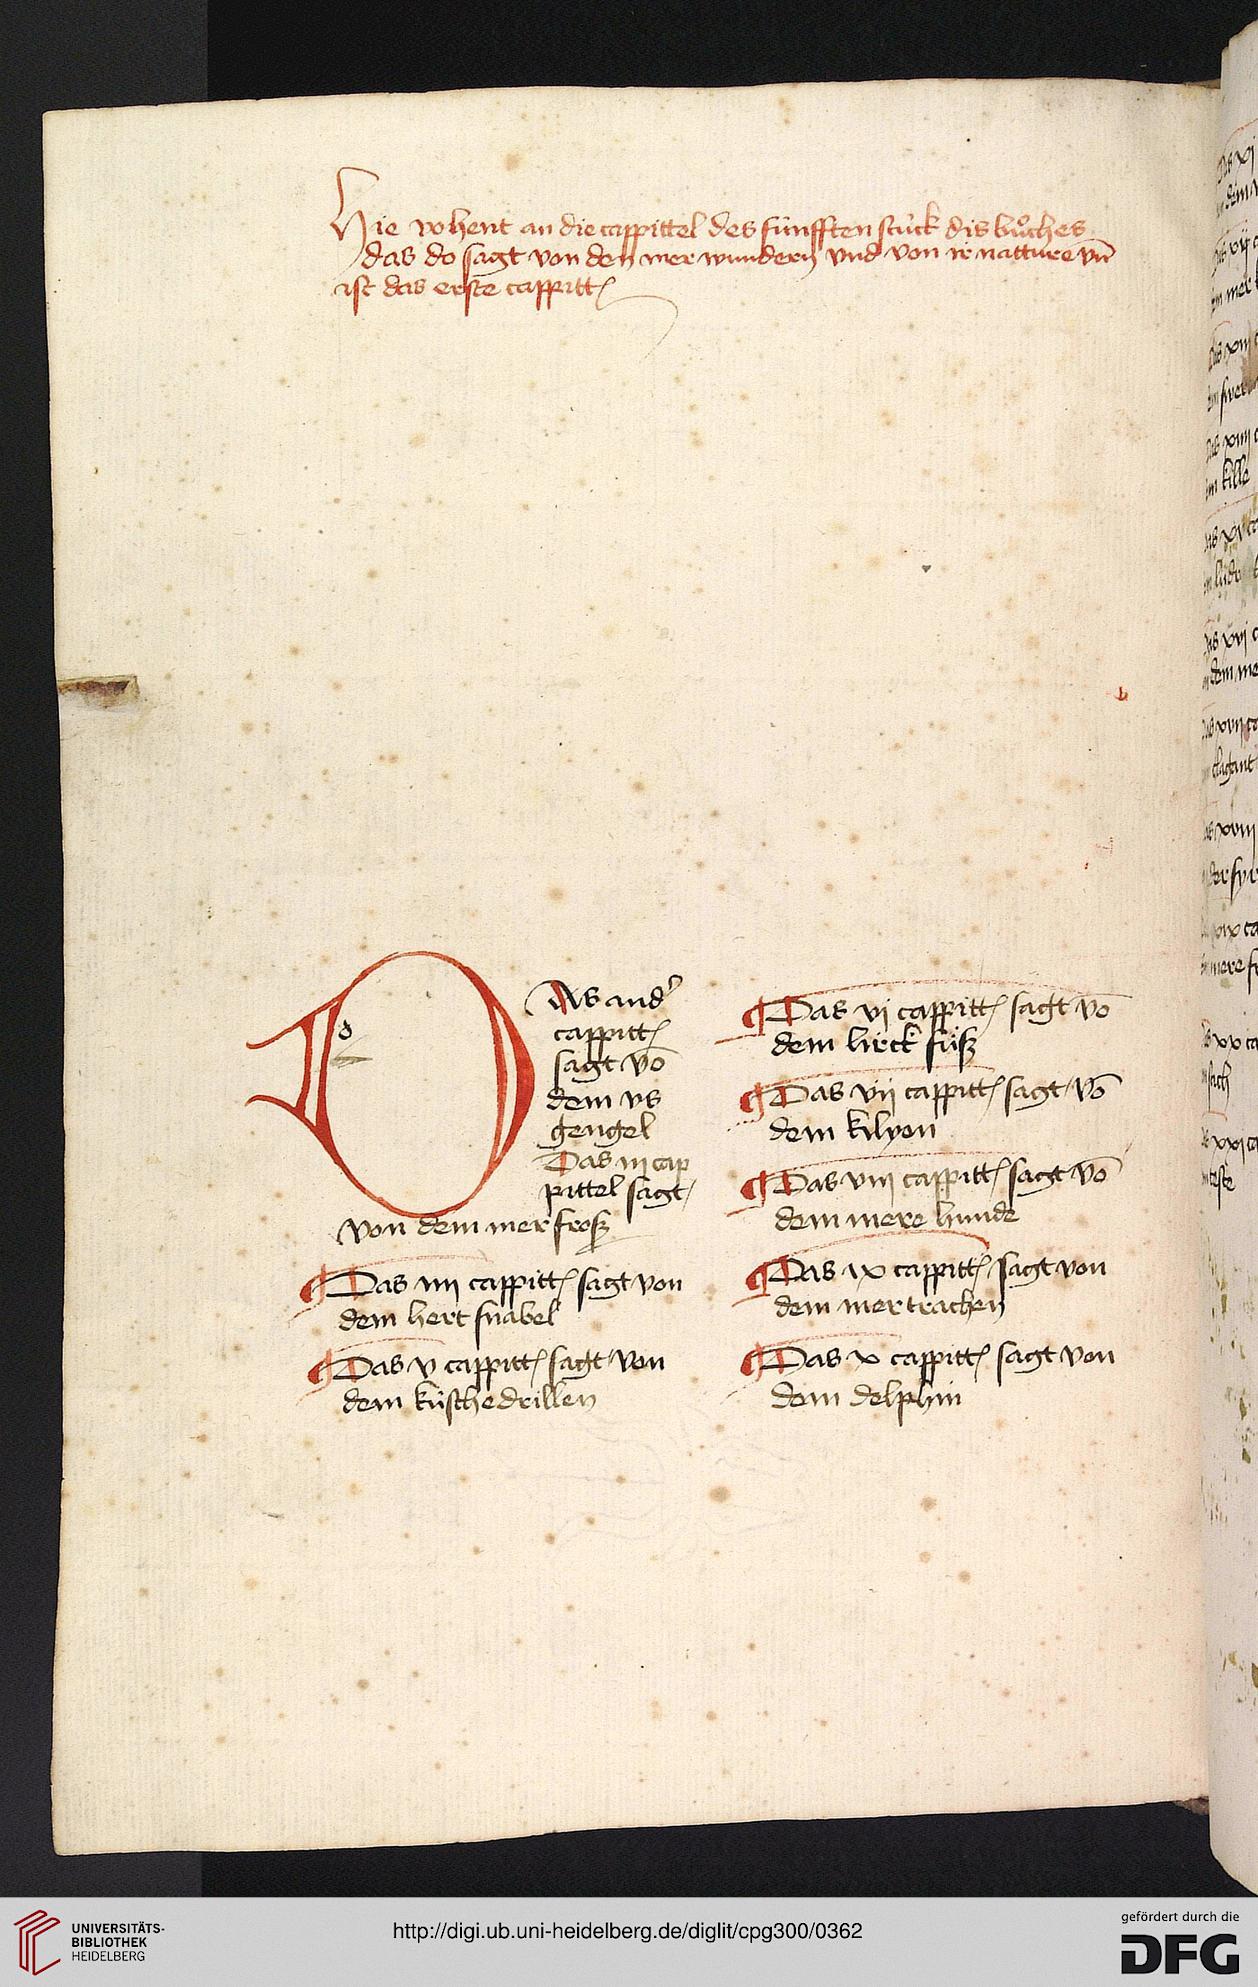 Hie vohent an die cappittel des fünfften stück dis bůches
das do sagt von den mer wundern vnd von ir natture vn̄
ist das erste cappitt
d
Das and'
cappitt
sagt vō
dem vs
gengel
Das iii cap
pittel sagt
von dem mer frosz
Das iiii cappitt sagt von
dem hert snabel
Das v cappitt sagt von
dem küschedrillen
Das vi cappitt sagt vō
dem lirck füsz
Das vii cappitt sagt vō
dem kilyon
Das viii cappitt sagt vō
dem mere hunde
Das ix cappitt sagt von
dem mertrachen
Das x cappitt sagt von
dem delphin
UNIVERSITÄTS-
BIBLIOTHEK
HEIDELBERG
http://digi.ub.uni-heidelberg.de/diglit/cpg300/0362
gefördert durch die
DFG